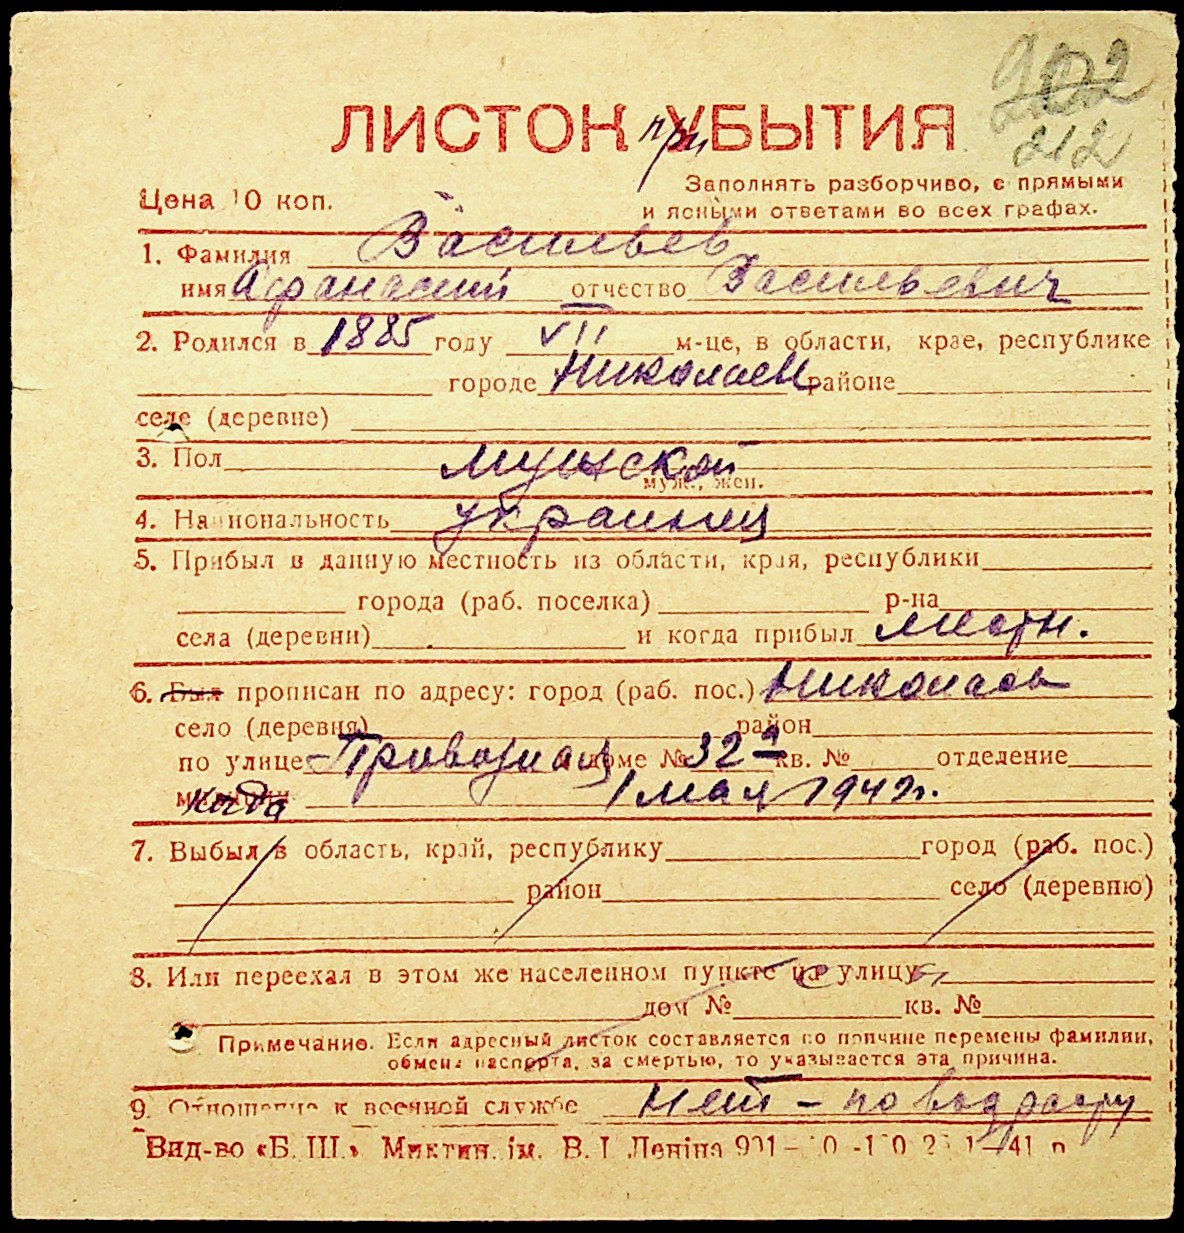 202
212
ЛИСТОК при УБЫТИЯ
Цена 10 коп.
Заполнять разборчиво, с прямыми
и ясными ответами во всех графах.
1. Фамилия Васильев
имя Афанасий отчество Васильевич
2. Родился в 1885 году VII м-це, в области, крае, республике
городе Николаев районе
селе (деревне)
3. Пол мужской
муж., жен.
4. Национальность украинец
5. Прибыл в данную местность из области, края, республики
города (раб. поселка) р-на
села (деревни) и когда прибыл местн.
6. Был прописан по адресу: город (раб. пос.) Николаев
село (деревня) район
по улице Провозная в доме № 32 а кв. № отделение
Когда 1 мая 1942 г.
7. Выбыл в область, край, республику город (раб. пос.)
район село (деревню)
8. Или переехал в этом же населенном пункте на с улицу
дом № кв. №
Примечание. Если адресный листок составляется по причине перемены фамилии,
обмена паспорта, за смертью, то указывается эта причина.
9. Отношение к военной службе Нет – по возрасту
Вид-во «Б. Ш.» Миктин. ім. В. І. Леніна